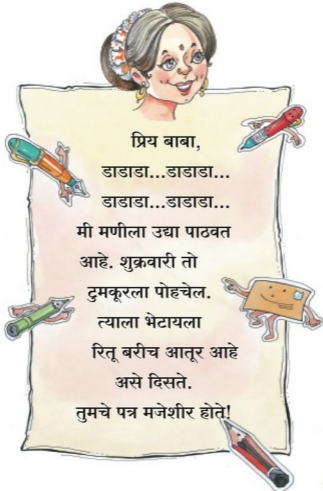 प्रिय बाबा,
डाडाडा...डाडाडा...
डाडाडा...डाडाडा...
मी मणीला उद्या पाठवत
आहे. शुक्रवारी तो
टुमकूरला पोहचेल.
त्याला भेटायला
रितू बरीच आतूर आहे
असे दिसते.
तुमचे पत्र मजेशीर होते!